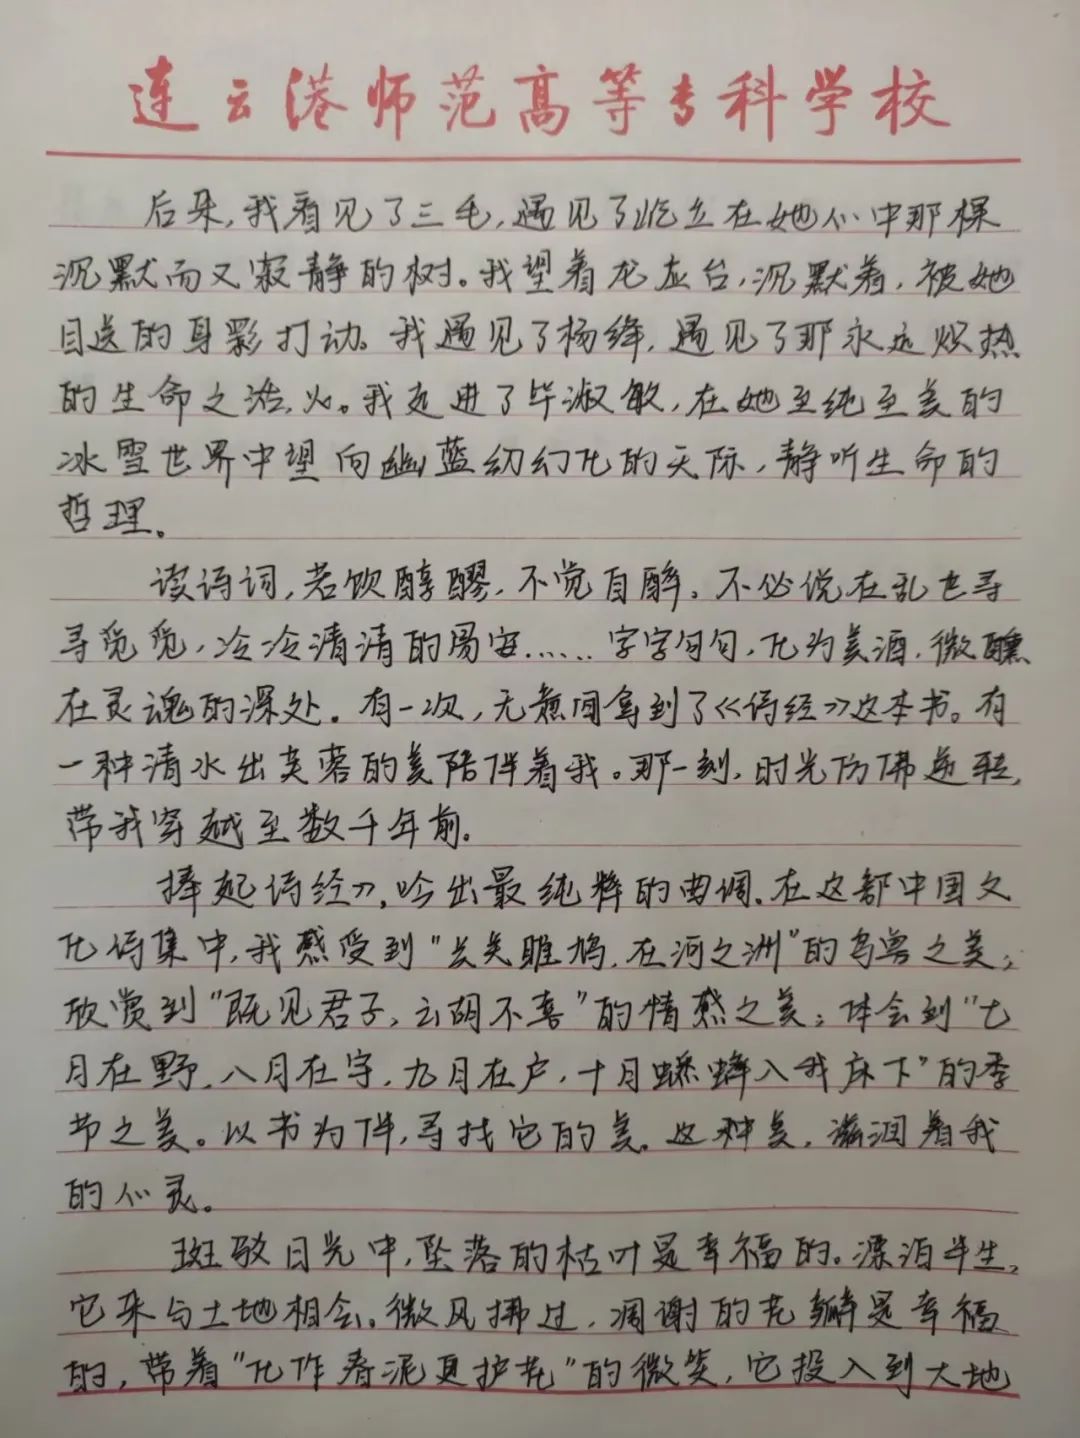 连云港师范高等专科学校
后来，我看见了三毛，遇见了屹立在她心中那棵
沉默而又寂静的树。我望着龙应台，沉默着，被她
目送的身影打动。我遇见了杨绛，遇见了那永远炽热
的生命之浩火。我走进了毕淑敏，在她至纯至美的
冰雪世界中望向幽蓝幼幻化的天际，静听生命的
哲理。
读诗词，若饮醇醪，不觉自醉。不必说在乱世寻
寻觅觅，冷冷清清的易安……字字句句，化为美酒，微醺
在灵魂的深处。有一次，无意间拿到了《诗经》这本书。有
一种清水出芙蓉的美陪伴着我。那一刻，时光仿佛逆转，
带我穿越至数千年前。
捧起诗经》，吟出最纯粹的曲调。在这部中国文
化诗集中，我感受到“关关雎鸠，在河之洲”的鸟兽之美；
欣赏到“既见君子，云胡不喜”的情感之美；体会到“七
月在野，八月在宇，九月在户，十月蟋蟀入我床下”的季
节之美。以书为伴，寻找它的美。这种美，滋润着我
的心灵。
斑驳日光中，坠落的枯叶是幸福的。漂泊半生，
它来与土地相会。微风拂过，凋谢的花瓣是幸福
的，带着“化作春泥更护花”的微笑，它投入到大地